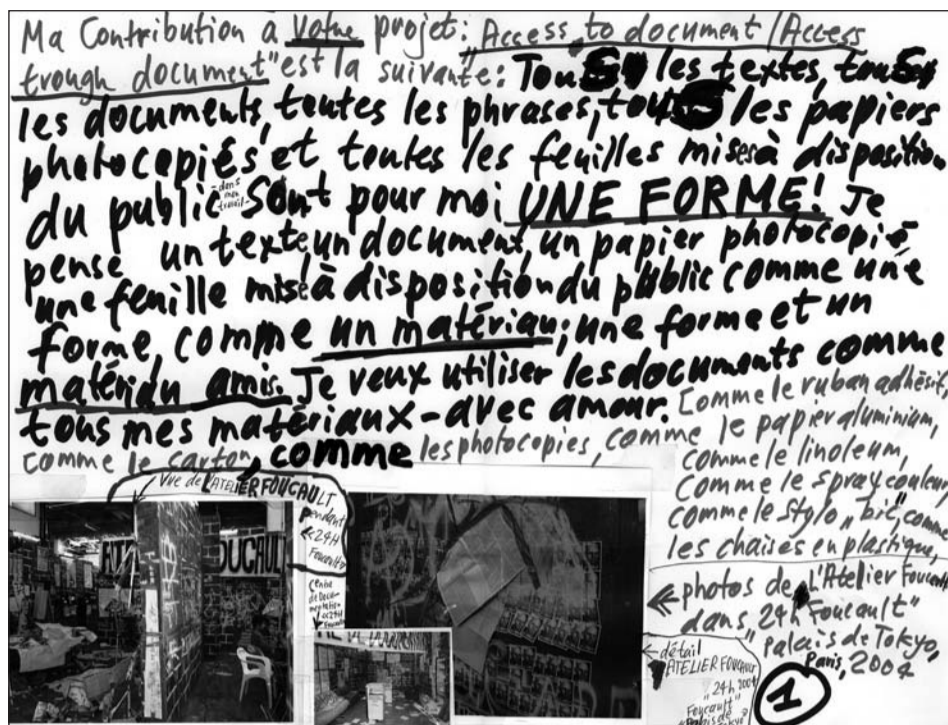 Ma Contribution à votre projet: "Access to document/Access
trough document" est la suivante: Tous les textes, tous
les documents, toutes les phrases, tous les papiers
photocopiés et toutes les feuilles mises à disposition
du public -dans mon travail- sont pour moi UNE FORME! Je
pense un texte un document, un papier photocopié,
une feuille mise à disposition du public comme une
forme, comme un matériau; une forme et un
matériau amis. Je veux utiliser les documents comme
tous mes matériaux - avec amour. Comme le ruban adhésif,
comme le papier aluminium,
comme le carton, comme les photocopies,
comme le linoleum,
comme le spray couleur,
comme le stylo "bic", comme
les chaises en plastique,
Vue de L'ATELIER FOUCAULT
pendant
«24H
Foucault»
Centre
de Docu-
mentation
«24H
Foucault»
FOUCAULT
photos de L'Atelier Foucault
dans "24h Foucault"
Palais de Tokyo,
Paris, 2004
détail
ATELIER FOUCAULT
"24h
Foucault"
2004
1